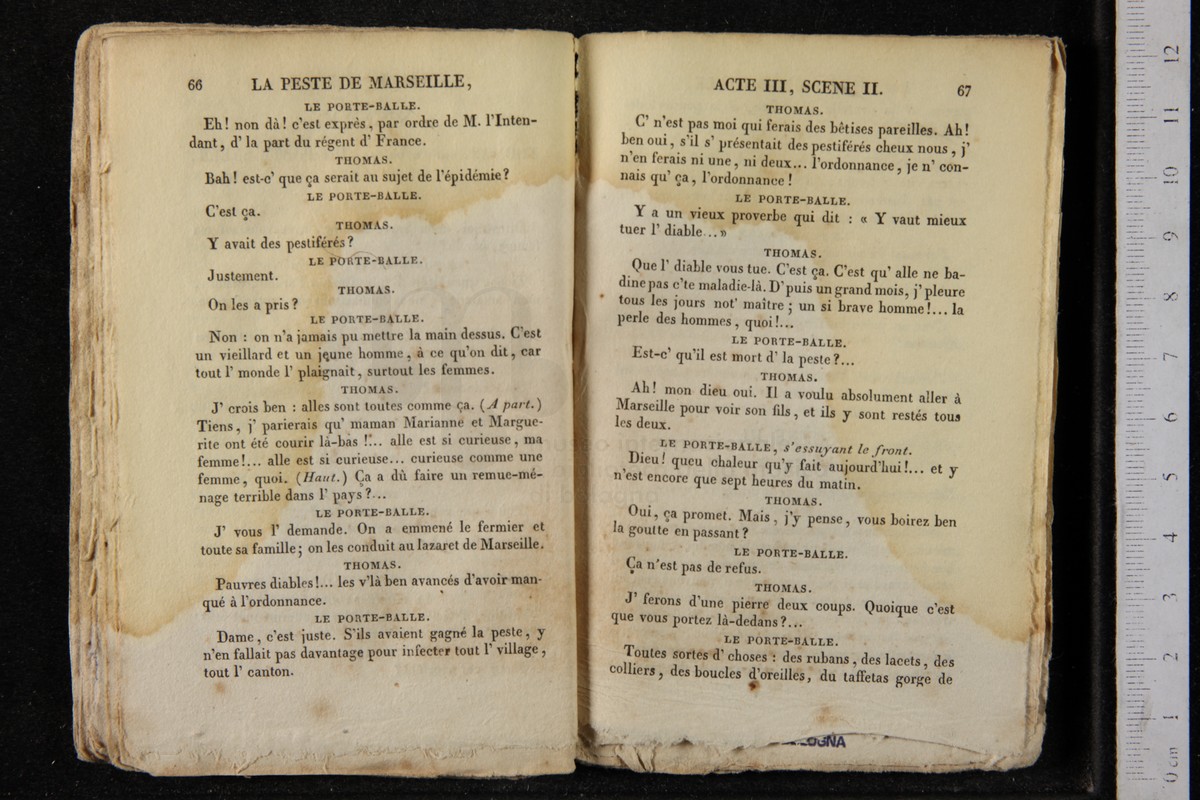 66 LA PESTE DE MARSEILLE,
LE PORTE-BALLE.
Eh! non dà! c'est exprès, par ordre de M. l'Inten-
dant, d' la part du régent d' France.
THOMAS.
Bah! est-c' que ça serait au sujet de l'épidémie?
LE PORTE-BALLE.
C'est ça.
THOMAS.
Y avait des pestiférés?
LE PORTE-BALLE.
Justement.
THOMAS.
On les a pris?
LE PORTE-BALLE.
Non : on n'a jamais pu mettre la main dessus. C'est
un vieillard et un jeune homme, à ce qu'on dit, car
tout l' monde l' plaignait, surtout les femmes.
THOMAS.
J' crois ben : alles sont toutes comme ça. (A part.)
Tiens, j' parierais qu' maman Marianne et Margue-
rite ont été courir là-bas !... alle est si curieuse, ma
femme!... alle est si curieuse... curieuse comme une
femme, quoi. (Haut.) Ça a dû faire un remue-mé-
nage terrible dans l' pays?...
LE PORTE-BALLE.
J' vous l' demande. On a emmené le fermier et
toute sa famille; on les conduit au lazaret de Marseille.
THOMAS.
Pauvres diables!... les v'là ben avancés d'avoir man-
qué à l'ordonnance.
LE PORTE-BALLE.
Dame, c'est juste. S'ils avaient gagné la peste, y
n'en fallait pas davantage pour infecter tout l' village,
tout l' canton.
ACTE III, SCENE II. 67
THOMAS.
C' n'est pas moi qui ferais des bêtises pareilles. Ah!
ben oui, s'il s' présentait des pestiférés cheux nous, j'
n'en ferais ni une, ni deux... l'ordonnance, je n' con-
nais qu' ça, l'ordonnance!
LE PORTE-BALLE.
Y a un vieux proverbe qui dit : « Y vaut mieux
tuer l' diable... »
THOMAS.
Que l' diable vous tue. C'est ça. C'est qu' alle ne ba-
dine pas c'te maladie-là. D'puis un grand mois, j' pleure
tous les jours not' maître; un si brave homme!... la
perle des hommes, quoi!...
LE PORTE-BALLE.
Est-c' qu'il est mort d' la peste?...
THOMAS.
Ah! mon dieu oui. Il a voulu absolument aller à
Marseille pour voir son fils, et ils y sont restés tous
les deux.
LE PORTE-BALLE, s'essuyant le front.
Dieu! queu chaleur qu'y fait aujourd'hui!... et y
n'est encore que sept heures du matin.
THOMAS.
Oui, ça promet. Mais, j'y pense, vous boirez ben
la goutte en passant?
LE PORTE-BALLE.
Ça n'est pas de refus.
THOMAS.
J' ferons d'une pierre deux coups. Quoique c'est
que vous portez là-dedans?...
LE PORTE-BALLE.
Toutes sortes d' choses : des rubans, des lacets, des
colliers, des boucles d'oreilles, du taffetas gorge de
0 cm 1 2 3 4 5 6 7 8 9 10 11 12